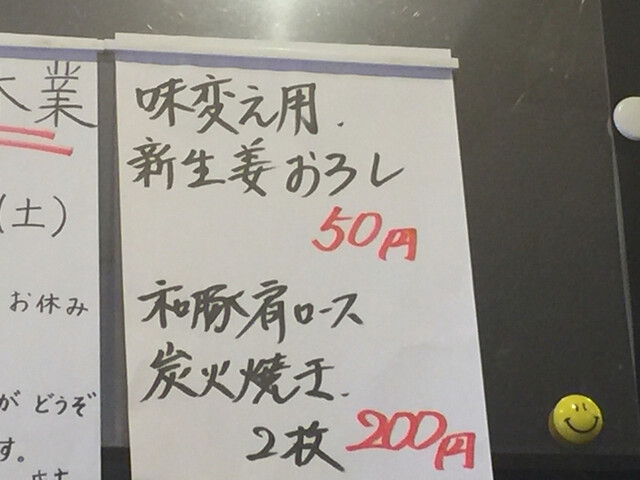 業
(土)
お休み
が どうぞ
す。
味変え用.
新生姜おろし
50円
和豚肩ロース
炭火焼き.
2枚 200円